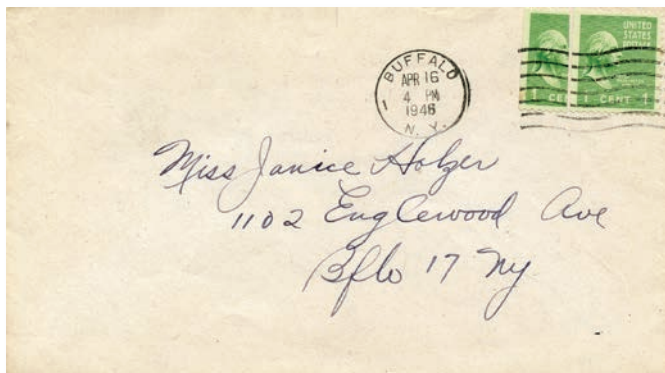 BUFFALO
APR 16
4 PM
1946
N. Y.
1
1 CE
UNITED
STATES
POSTAGE
1 CENT 1
Miss Janice Holzer
1102 Englewood Ave
Bflo 17 Ny